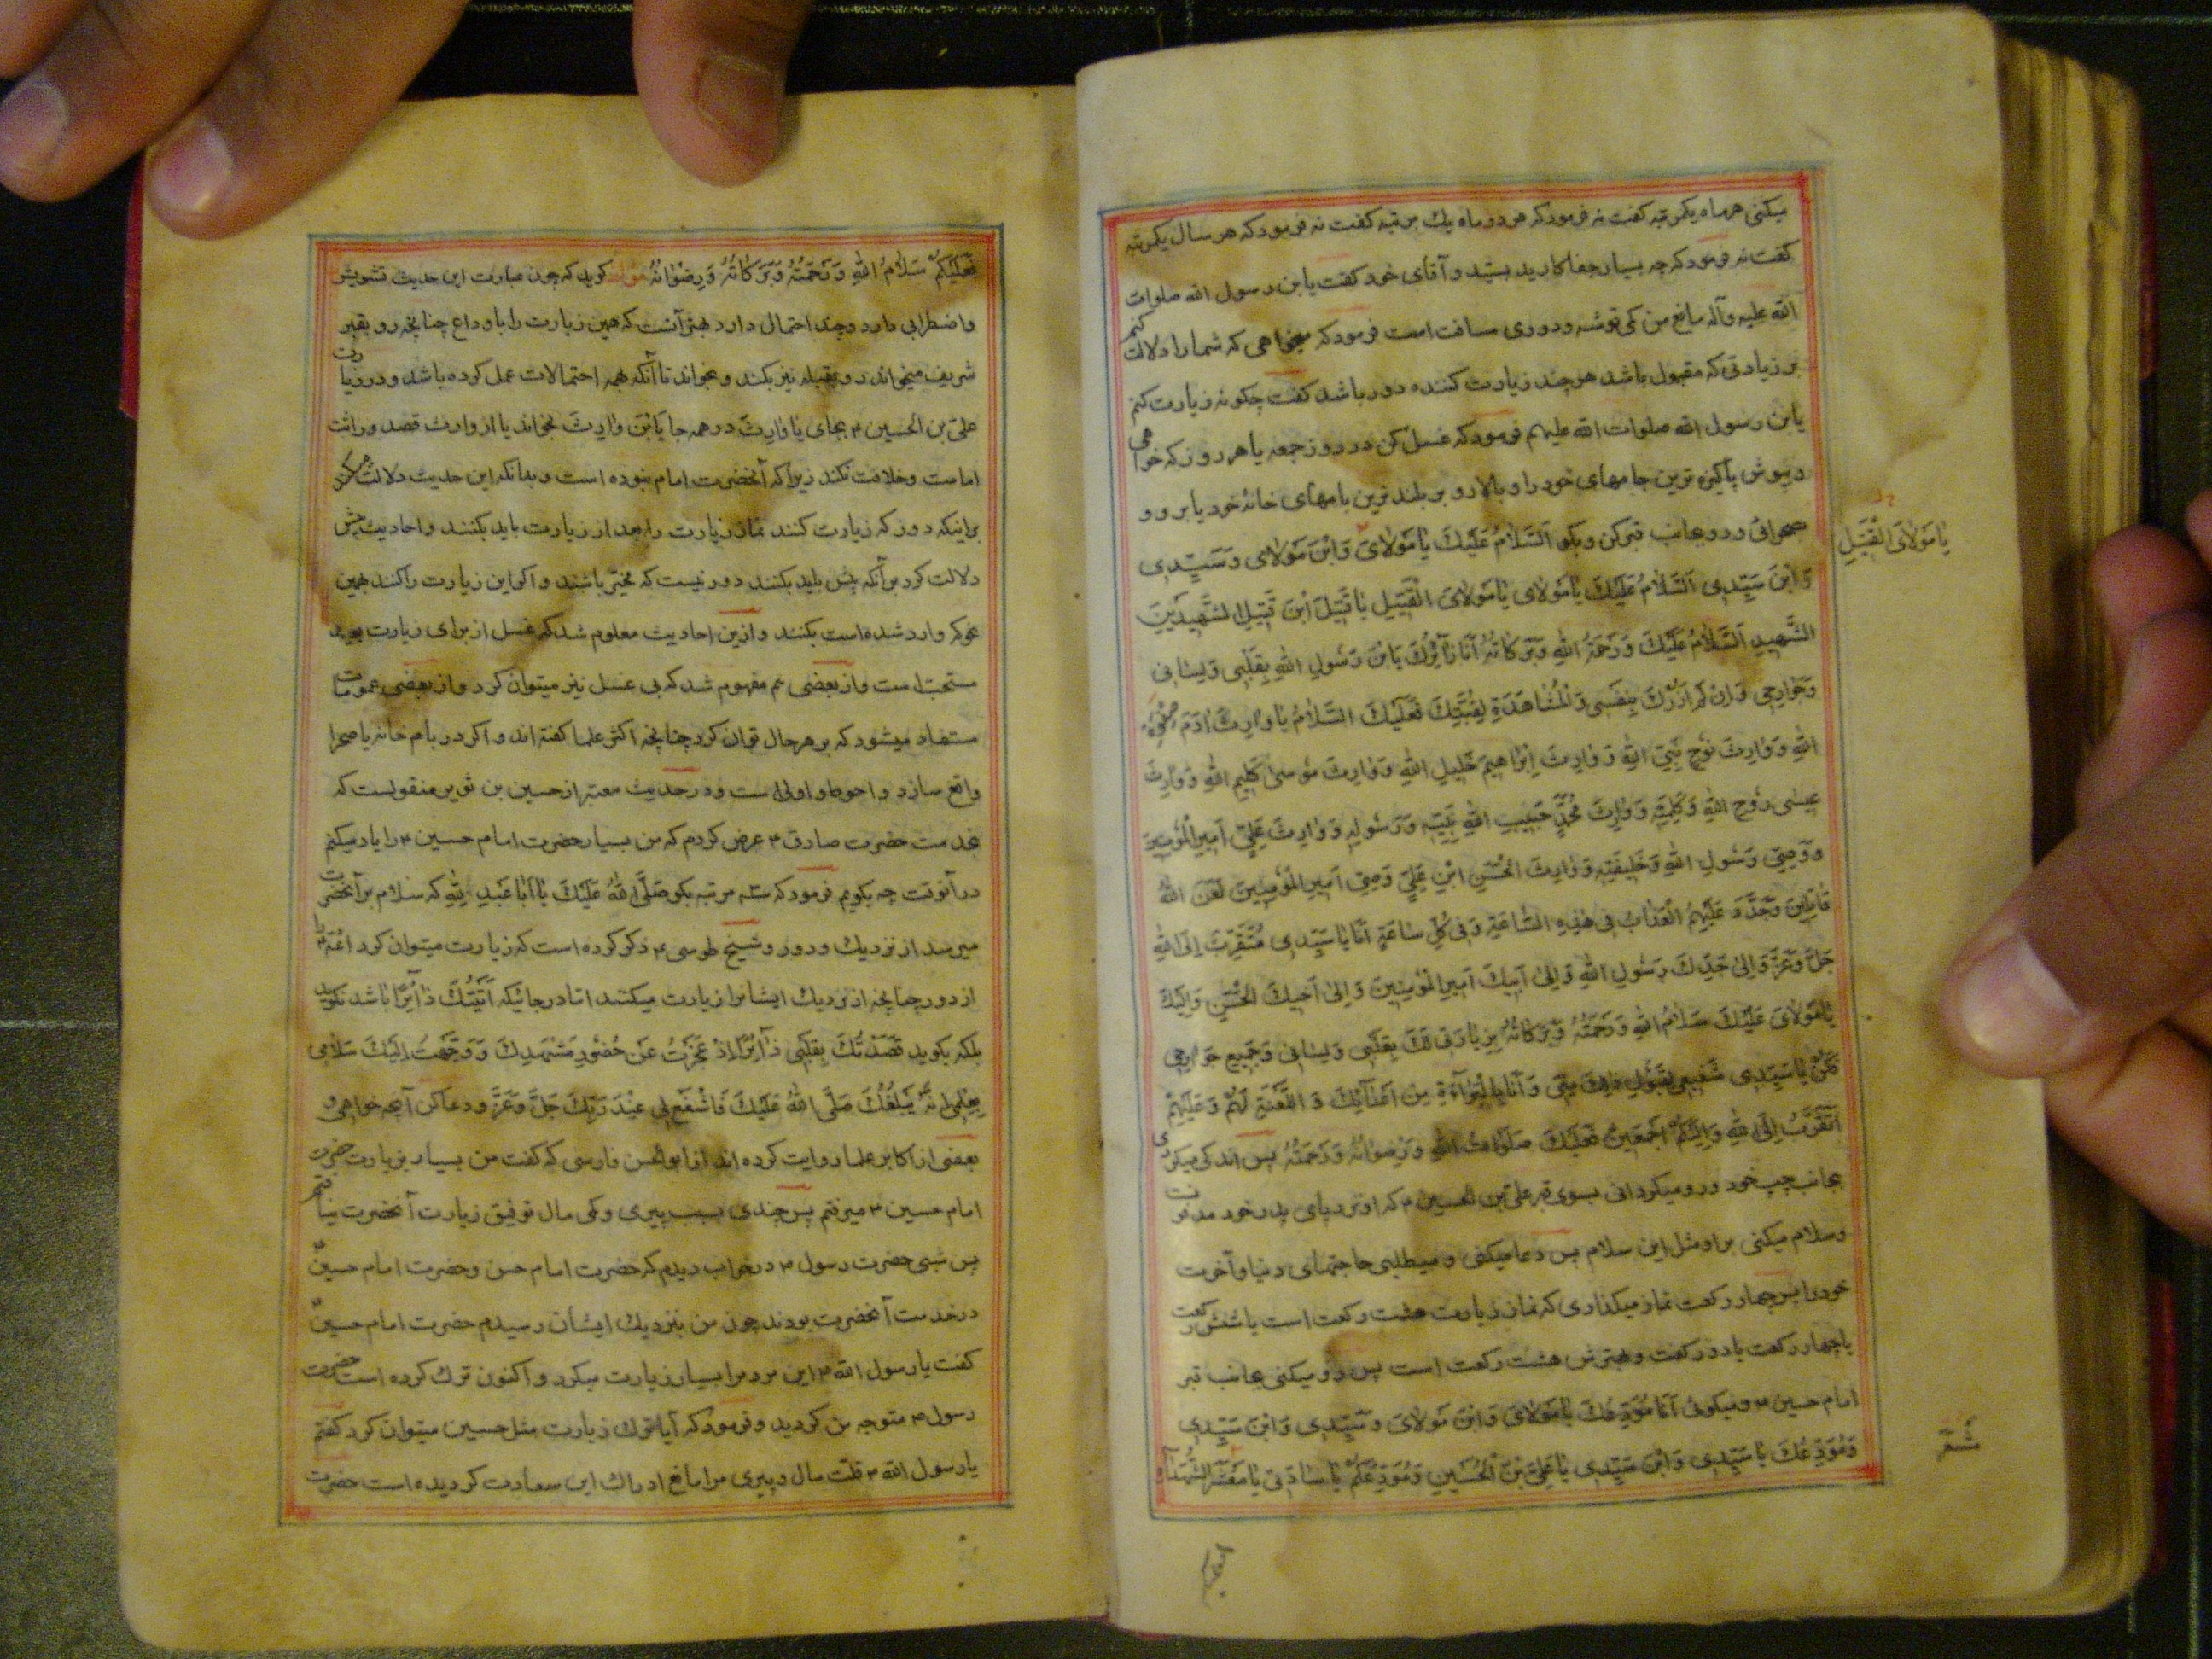 میکنی هر ماه یکمرتبه کفت نه فرمود که هر دو ماه یك مرتبه کفت نه فرمود که هر سال یکمرتبه
کفت نه فرمود که چه بسیار جفا کارید بسیّد و آقای خود کفت یابن رسول الله صلوات
الله علیه وآله مانع من کمی توشه و دوری مسافت است فرمود که میخواهی که شما را دلالت کنم
بر زیارتی که مقبول باشد هر چند زیارت کننده دور باشد کفت چکونه زیارت کنم
یابن رسول الله صلوات الله علیهم فرمود که غسل کن در روز جمعه یا هر روز که خواهی
و بپوش پاکیزه ترین جامهای خود را و بالا رو بر بلندترین بامهای خانهٔ خود یا برو و
صحرائی و رو بجانب قبر کن و بکو اَلسَّلامُ عَلَیْكَ یٰا مَوْلٰایَ وَابْنَ مَوْلٰایَ وَسَیِّدِی
وَابْنَ سَیِّدِی اَلسَّلامُ عَلَیْكَ یٰا مَوْلٰایَ یٰا مَوْلٰایَ الْقَتِیلِ یٰا قَتِیلَ ابْنَ قَتِیلِ الشَّهِیدَیْنِ
یٰا مَوْلٰایَ الْقَتِیلِ
الشَّهِیدِ اَلسَّلٰامُ عَلَیْكَ وَرَحْمَةُ اللهِ وَبَرَکٰاتُهُ اَنَا زٰائِرُكَ یَابْنَ رَسُولِ اللهِ بِقَلْبِی وَلِسٰانِی
وَجَوٰارِحِی وَاِنْ لَمْ اَزُرْكَ بِنَفْسِی وَالْمُشٰاهَدَةِ لِقُبَّتِكَ فَعَلَیْكَ السَّلٰامُ یٰا وٰارِثَ اٰدَمَ صِفْوَةِ
اللهِ وَوٰارِثَ نُوحٍ نَبِیِّ اللهِ وَوٰارِثَ اِبْرٰاهِیمَ خَلِیلِ اللهِ وَوٰارِثَ مُوسیٰ کَلِیمِ اللهِ وَوٰارِثَ
عِیسٰی رُوحِ اللهِ وَکَلِمَتِهِ وَوٰارِثَ مُحَمَّدٍ حَبِیبِ اللهِ نَبِیِّهِ وَرَسُولِهِ وَوٰارِثَ عَلِیٍّ اَمِیرِ الْمُؤْمِنِینَ
وَوَصِیِّ رَسُولِ اللهِ وَخَلِیفَتِهِ وَوٰارِثَ الْحَسَنِ ابْنِ عَلِیٍّ وَصِیِّ اَمِیرِ الْمُؤْمِنِینَ لَعَنَ اللهُ
قٰاتِلِیكَ وَجَدَّدَ عَلَیْهِمُ الْعَذٰابَ فِی هٰذِهِ السّٰاعَةِ وَفِی کُلِّ سٰاعَةٍ اَنَا یٰا سَیِّدِی مُتَقَرِّبٌ اِلَی اللهِ
جَلَّ وَعَزَّ وَاِلیٰ جَدِّكَ رَسُولِ اللهِ وَاِلیٰ اَبِیكَ اَمِیرِ الْمُؤْمِنِینَ وَاِلیٰ اَخِیكَ الْحَسَنِ وَاِلَیْكَ
یٰا مَوْلٰایَ عَلَیْكَ سَلٰامُ اللهِ وَرَحْمَتُهُ وَبَرَکٰاتُهُ بِزِیٰارَتِی لَكَ بِقَلْبِی وَلِسٰانِی وَجَمِیعِ جَوٰارِحِی
فَکُنْ یٰا سَیِّدِی شَفِیعِی لِقَبُولِ ذٰلِكَ مِنِّی وَاَنَا بِالْبَرٰاءَةِ مِنْ اَعْدٰائِكَ وَاللَّعْنَةِ لَهُمْ وَعَلَیْهِمْ
اَتَقَرَّبُ اِلَی اللهِ وَاِلَیْکُمْ اَجْمَعِینَ فَعَلَیْكَ صَلَوٰاتُ اللهِ وَرِضْوٰانُهُ وَرَحْمَتُهُ پس اندکی میکردی
بجانب چپ خود و رو میکردانی بسوی قبر علی بن الحسین ۴ که او نزد پای پدر خود مدفونست
و سلام میکنی بر او مثل این سلام پس دعا میکنی و میطلبی حاجتهای دنیا و آخرت
خود را پس چهار رکعت نماز میکذاری که نماز زیارت هشت رکعت است یا شش رکعت
یا چهار رکعت یا دو رکعت و بهترش هشت رکعت است پس رو میکنی بجانب قبر
امام حسین ۴ و میکوئی اَنَا مُوَدِّعُكَ یٰا مَوْلٰایَ وَابْنَ مَوْلٰایَ وَسَیِّدِی وَابْنَ سَیِّدِی
وَمُوَدِّعُكَ یٰا سَیِّدِی وَابْنَ سَیِّدِی یٰا عَلِیَّ بْنَ الْحُسَیْنِ وَمُوَدِّعُکُمْ یٰا سٰادَتِی یٰا مَعْشَرَ الشُّهَدٰاءِ
فَعَلَیْکُمْ سَلٰامُ اللهِ وَرَحْمَتُهُ وَبَرَکٰاتُهُ وَرِضْوٰانُهُ مؤلف کوید که چون عبارت این حدیث تشویش
و اضطرابی دارد و چند احتمال دارد بهتر آنست که همین زیارت را با وداع چنانچه رو بقبر
شریف میخواند رو بقبله نیز بکند و بخواند تا آنکه بهمه احتمالات عمل کرده باشد و در زیارت
علی بن الحسین ۴ بجای یٰا وٰارِثَ در همه جا یَابْنَ وٰارِثَ بخواند یا از وارث قصد وراثت
امامت و خلافت نکند زیرا که آنحضرت امام نبوده است و بدانکه این حدیث دلالت میکند
بر اینکه دور که زیارت کنند نماز زیارت را بعد از زیارت باید بکنند و احادیث پیش
دلالت کرد بر آنکه پیش باید بکنند دور نیست که مخیّر باشند و اکر این زیارت را کنند بهمین
نحو که وارد شده است بکنند و ازین احادیث معلوم شد که غسل از برای زیارت بعید
مستحبّ است و از بعضی هم مفهوم شد که بی غسل نیز میتوان کرد و از بعضی عمومات
مستفاد میشود که بر هر حال توان کرد چنانچه اکثر علما کفته اند و اکر در بام خانه یا صحرا
واقع سازد و احوط و اولی است و در حدیث معتبر از حسین بن ثویر منقولست که
بخدمت حضرت صادق ۴ عرض کردم که من بسیار حضرت امام حسین ۴ را یاد میکنم
در آنوقت چه بکویم فرمود که سه مرتبه بکو صَلَّی اللهُ عَلَیْكَ یٰا اَبٰا عَبْدِ اللهِ که سلام بر آنحضرت
میرسد از نزدیك و دور و شیخ طوسی ره ذکر کرده است که زیارت میتوان کرد ائمّه را
از دور چنانچه از نزدیك ایشانرا زیارت میکنند امّا در جائیکه اَتَیْتُكَ زٰائِرًا باشد نکوید
بلکه بکوید قَصَدْتُكَ بِقَلْبِی زٰائِرًا اِذْ عَجَزْتُ عَنْ حُضُورِ مَشْهَدِكَ وَوَجَّهْتُ اِلَیْكَ سَلٰامِی
لِعِلْمِی اَنَّهُ یَبْلُغُكَ صَلَّی اللهُ عَلَیْكَ فَاشْفَعْ لِی عِنْدَ رَبِّكَ جَلَّ وَعَزَّ و دعا کن آنچه خواهی و
بعضی از اکابر علما روایت کرده اند از ابوالحسن فارسی که کفت من بسیار بزیارت حضرت
امام حسین ۴ میرفتم پس چندی بسبب پیری و کمی مال توفیق زیارت آنحضرت نیافتم
پس شبی حضرت رسول ۴ در خواب دیدم که حضرت امام حسن و حضرت امام حسینؑ
در خدمت آنحضرت بودند چون من بنزدیك ایشان رسیدم حضرت امام حسینؑ
کفت یا رسول الله ۴ این مرد مرا بسیار زیارت میکرد و اکنون ترك کرده است حضرت
رسول ۴ متوجه من کردید و فرمود که آیا ترك زیارت مثل حسین میتوان کرد کفتم
یا رسول الله ۴ قلّت مال و پیری مرا مانع ادراك این سعادت کردیده است حضرت